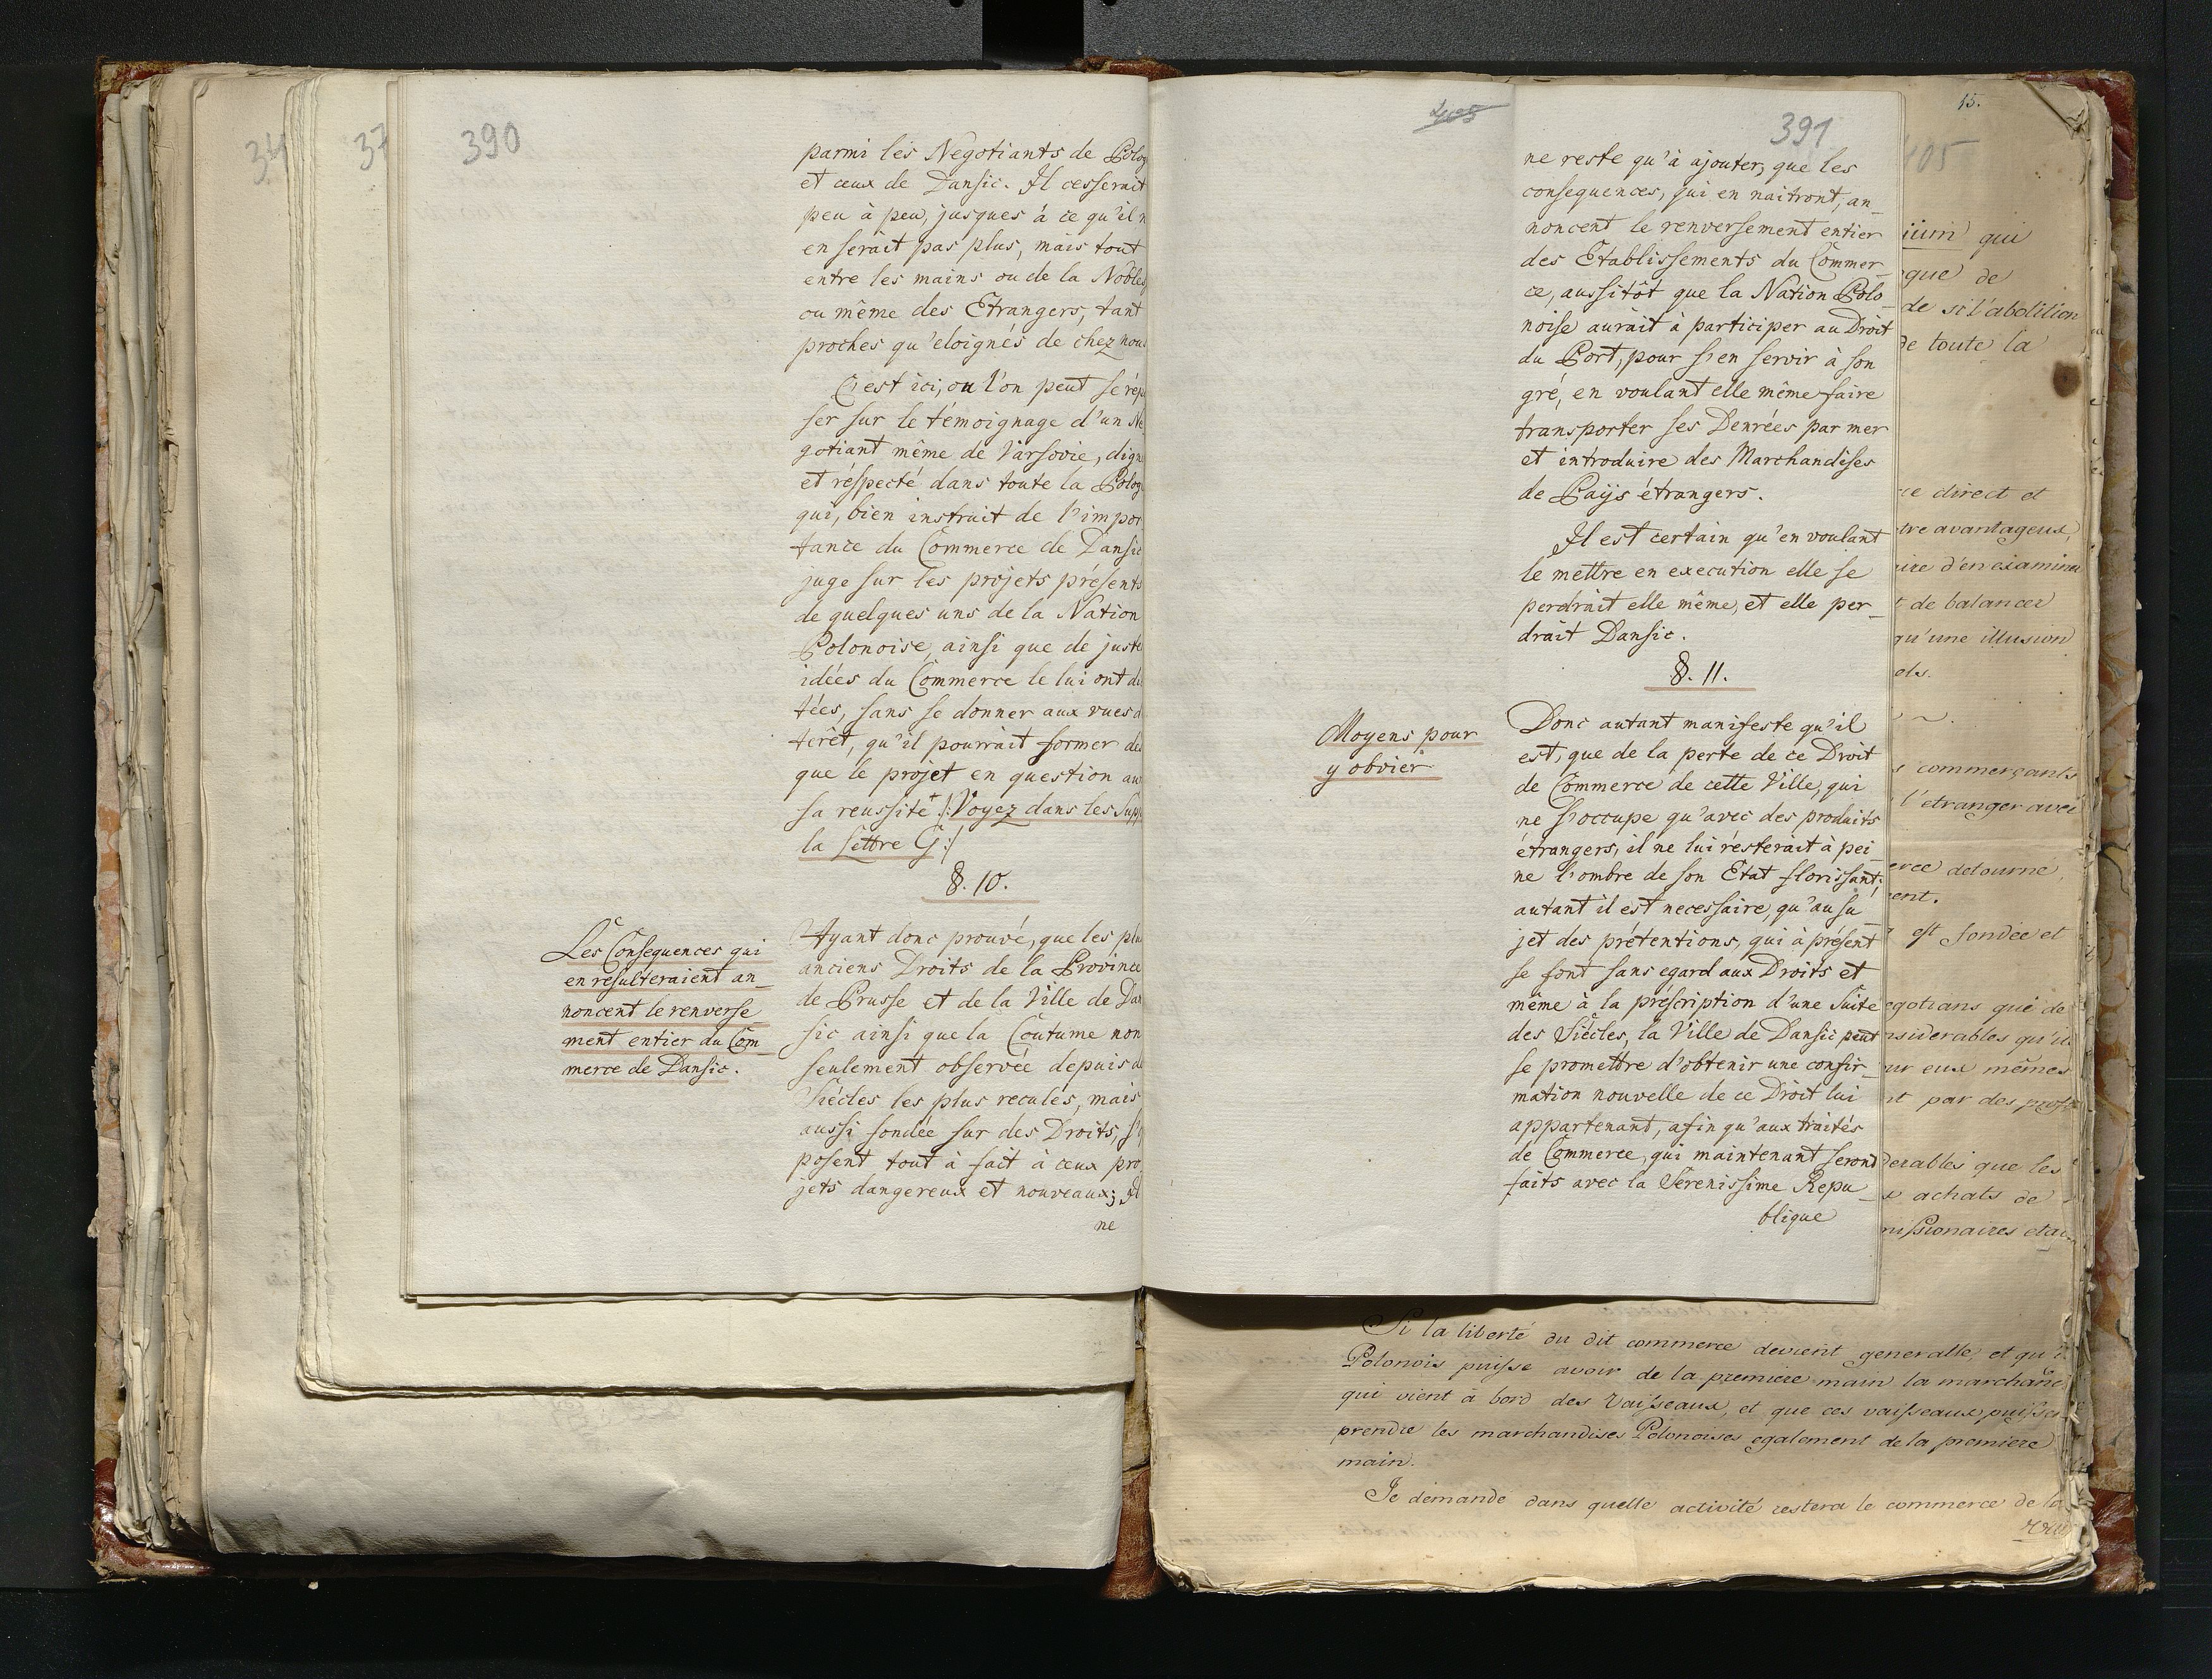 390
parmi les Negotiants de Polog
et ceux de Dansic. Il cesserait
peu à peu, jusques à ce qu'il n
en serait pas plus, mais tout
entre les mains ou de la Nobles
ou même des Etrangers, tant
proches qu'eloignés de chez nou
C'est ici, ou l'on peut se répo
ser sur le témoignage d'un Ne
gotiant même de Varsovie, digne
et réspecté dans toute la Polog
qui, bien instruit de l'impor
tance du Commerce de Dansic
juge sur les projets présents
de quelques uns de la Nation
Polonoise, ainsi que de juste
idées du Commerce le lui ont di
tées, sans se donner aux vues d
terêt, qu'il pourrait former des
que le projet en question au
sa reussité + /: Voyez dans les Supp
la Lettre G :/
§. 10.
Les Consequences qui
en resulteraient an_
noncent le renverse
ment entier du Com_
merce de Dansic.
Ayant donc prouvé, que les plus
anciens Droits de la Province
de Prusse et de la Ville de Dan
sic ainsi que la Coutume non
seulement observée depuis de
Siécles les plus reculés, mais
aussi fondée sur des Droits, s'o
posent tout à fait à ceux pro
jets dangereux et nouveaux; Il
ne
405
391
ne reste qu'à ajouter, que les
consequences, qui en naitront, an_
noncent le renversement entier
des Etablissements du Commer_
ce, aussitôt que la Nation Polo_
noise aurait à participer au Droit
du Port, pour s'en servir à son
gré, en voulant elle même faire
transporter ses Denrées par mer
et introduire des Marchandises
de Païjs étrangers.
Il est certain qu'en voulant
le mettre en execution elle se
perdrait elle même, et elle per_
drait Dansic.
§. 11.
Moyens pour
y obvier
Donc autant manifeste qu'il
est, que de la perte de ce Droit
de Commerce de cette Ville, qui
ne s'occupe qu'avec des produits
étrangers, il ne lui résterait à pei_
ne l'ombre de son Etat florissant;
autant il est necessaire, qu'au su_
jet des prétentions, qui à présent
se font sans egard aux Droits et
même à la préscription d'une Suite
des Siécles, la Ville de Dansic peut
se promettre d'obtenir une confir_
mation nouvelle de ce Droit lui
appartenant, afin qu'aux traités
de Commerce, qui maintenant serond
faits avec la Sérenissime Repu_
blique
15.
405
qui
que de
de si l'abolition
de toute la
ce direct et
tre avantageux,
ire d'en examiner
t de balancer
qu'une illusion
ols.
s commerçants
l'etranger avec
erce detourné,
ent.
est fondée et
egotians que de
nsiderables qu'il
ur eux mêmes
nt par des profi
derables que les
x achats de
missionaires eta
Si la liberté du dit commerce devient generalle, et qu
Polonois puisse avoir de la premiere main la marchan
qui vient à bord des Vaisseaux, et que ces vaisseaux puisse
prendre les marchandises Polonoises egalement de la premiere
main.
Je demande dans quelle activité restera le commerce de la